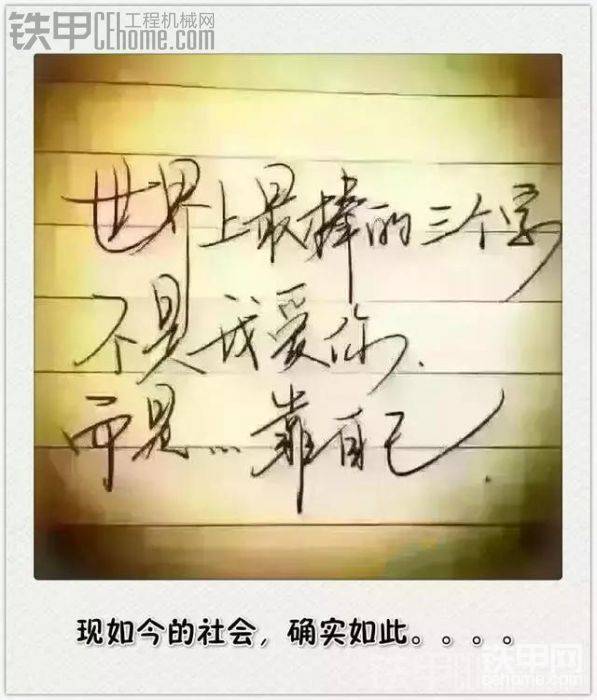 铁甲 工程机械网
CEhome.com
世界上最棒的三个字
不是我爱你.
而是... 靠自己.
现如今的社会，确实如此。。。。
铁甲网
www.cehome.com